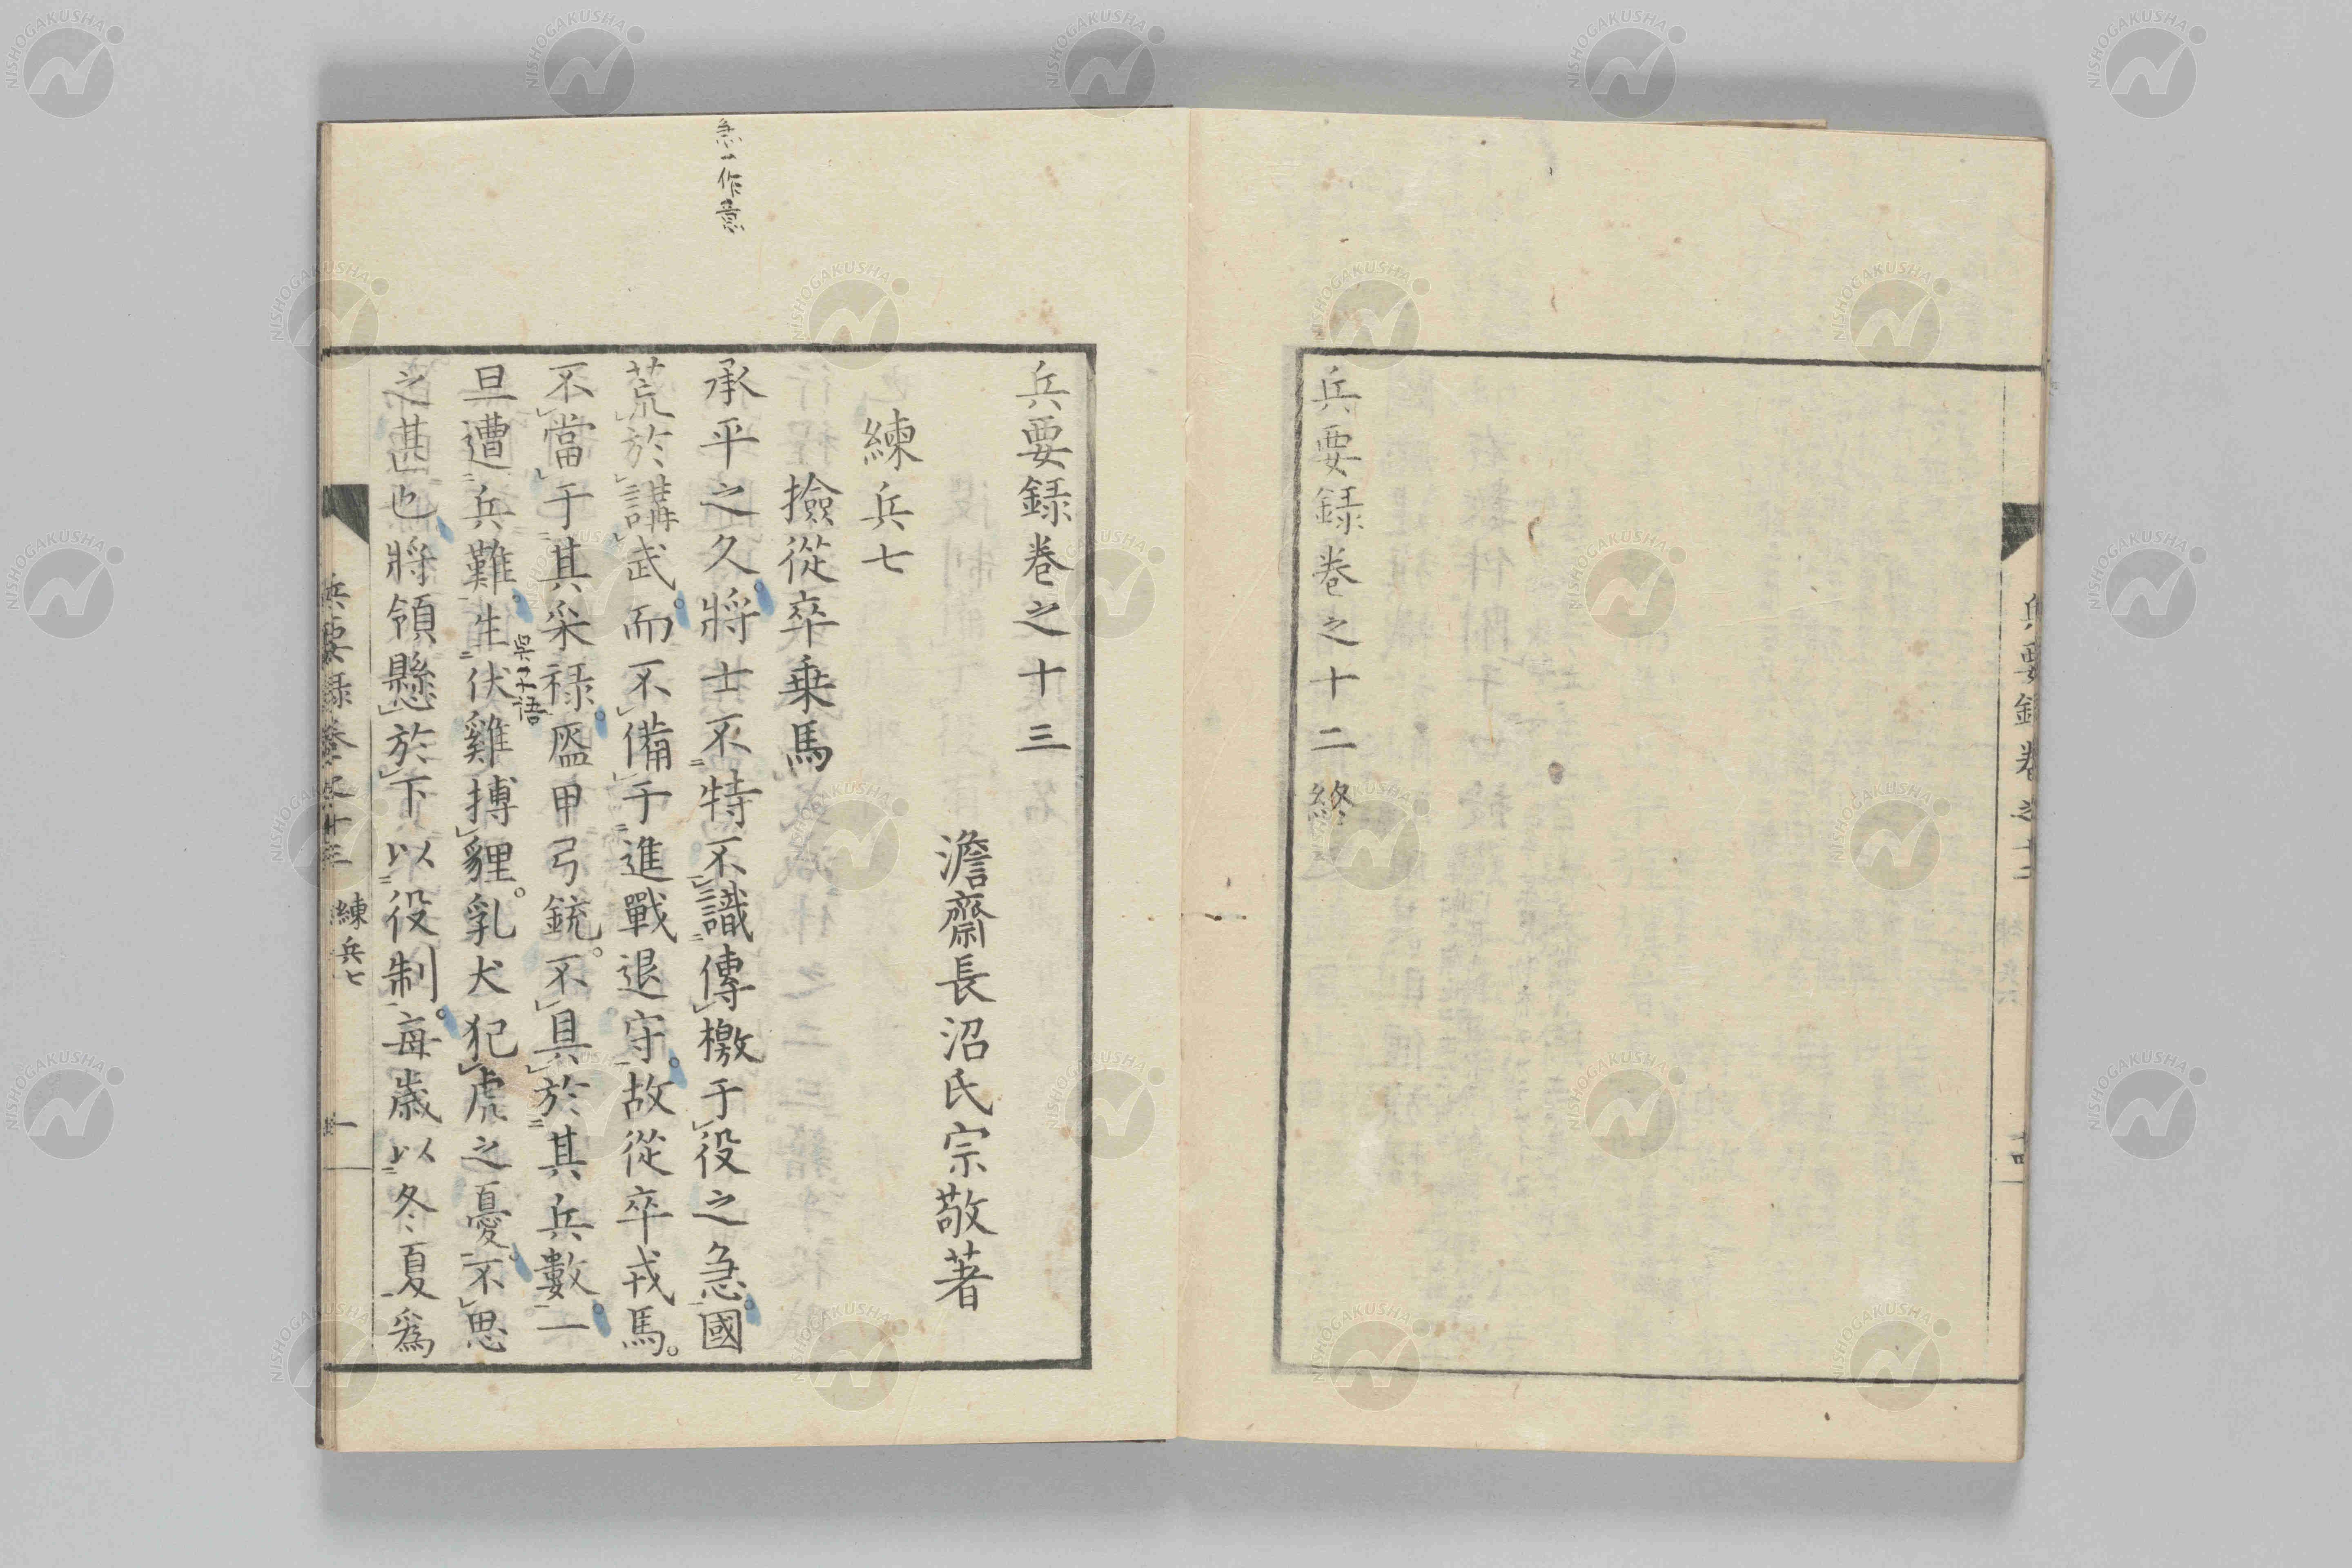 兵要録卷之十二終
兵要録卷之十三
澹齋長沼氏宗敬著
練兵七
撿從卒乗馬
承平之久將士不特不識傳檄于役之急國
荒於講武而不備于進戰退守故從卒戎馬
不當于其采禄盔甲弓銃不具於其兵數一
旦遭兵難生伏雞搏貍乳犬犯虎之憂不思
吳子語
之甚也將領懸於下以役制每歳以冬夏爲
兵要録卷之十三 練兵七 一
NISHOGAKUSHA